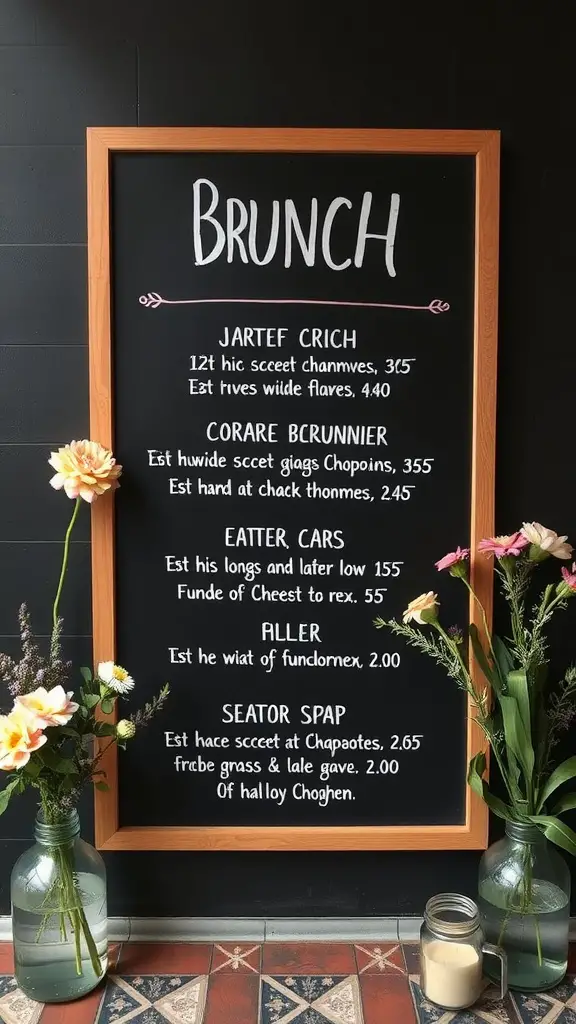 BRUNCH
JARTEF CRICH
12t hic scceet chanmves, 365
Est rives wilde flaves, 4.40
CORARE BCRUNNIER
Est huwide sccet giags Chopoins, 355
Est hand at chack thonmes, 2.45
EATTER, CARS
Est his longs and later low 155
Funde of Cheest to rex. 55
FILLER
Est he wiat of functornex, 2.00
SEATOR SPAP
Est hace scceet at Chapaotes, 2.65
Frcbe grass & lale gave. 2.00
Of halloy Choghen.